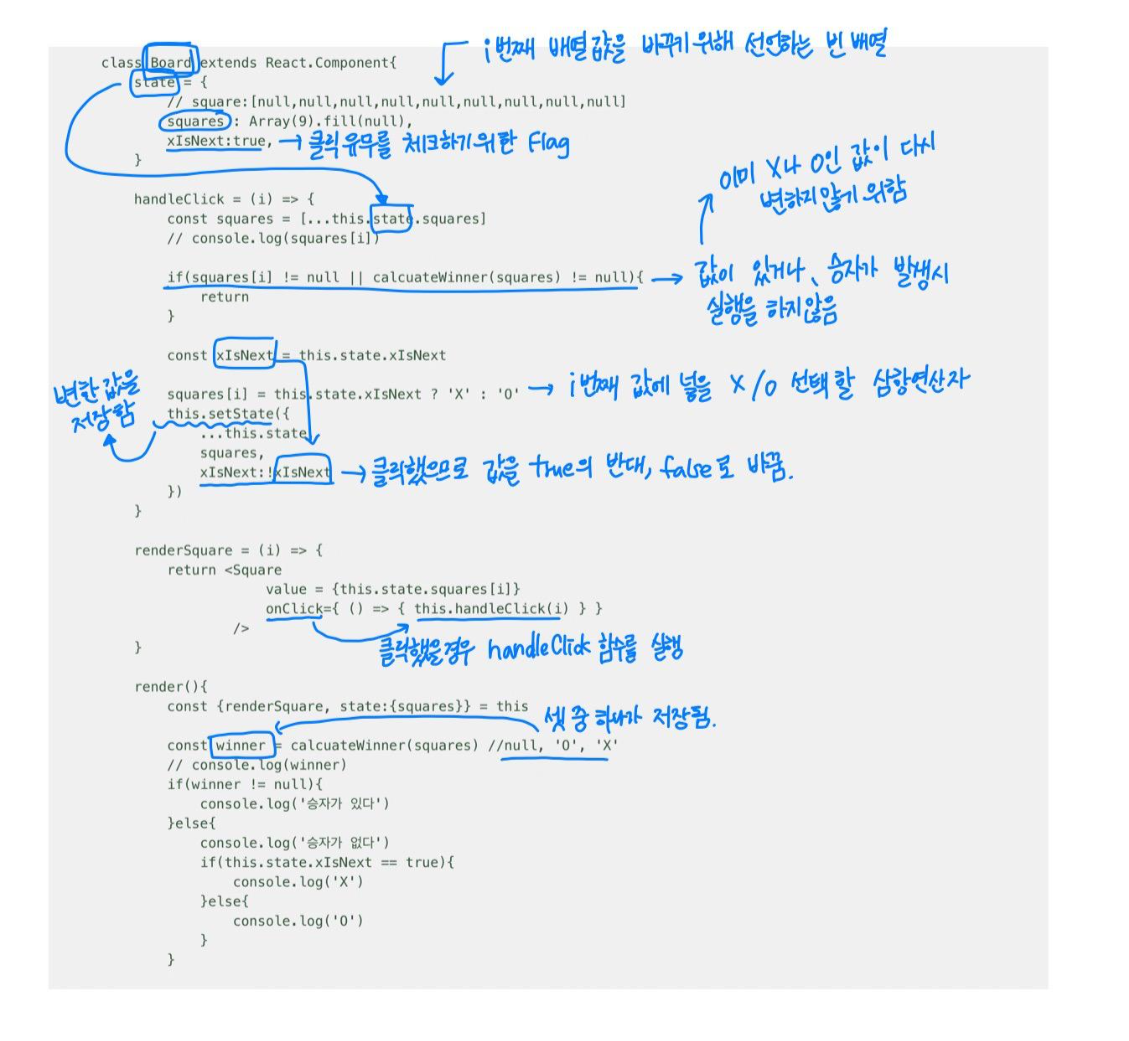 i번째 배열값을 바꾸기위해 선언하는 빈 배열
class Board extends React.Component{
state = {
// square:[null,null,null,null,null,null,null,null,null]
squares : Array(9).fill(null),
xIsNext:true, → 클릭유무를 체크하기위한 Flag
}
이미 X나 O인 값이 다시
변하지않기 위함
handleClick = (i) => {
const squares = [...this.state.squares]
// console.log(squares[i])
if(squares[i] != null || calcuateWinner(squares) != null){ → 값이 있거나, 승자가 발생시
실행을 하지않음
return
}
const xIsNext = this.state.xIsNext
변한 값을
저장함
squares[i] = this.state.xIsNext ? 'X' : 'O' → i번째 값에 넣을 X/O 선택할 삼항연산자
this.setState({
...this.state
squares,
xIsNext:!xIsNext → 클릭했으므로 값을 true의 반대, false로 바꿈.
})
}
renderSquare = (i) => {
return <Square
value = {this.state.squares[i]}
onClick={ () => { this.handleClick(i) } }
/>
클릭했을경우 handleClick 함수를 실행
}
render(){
const {renderSquare, state:{squares}} = this
셋 중 하나가 저장됨.
const winner = calcuateWinner(squares) //null, 'O', 'X'
// console.log(winner)
if(winner != null){
console.log('승자가 있다')
}else{
console.log('승자가 없다')
if(this.state.xIsNext == true){
console.log('X')
}else{
console.log('O')
}
}